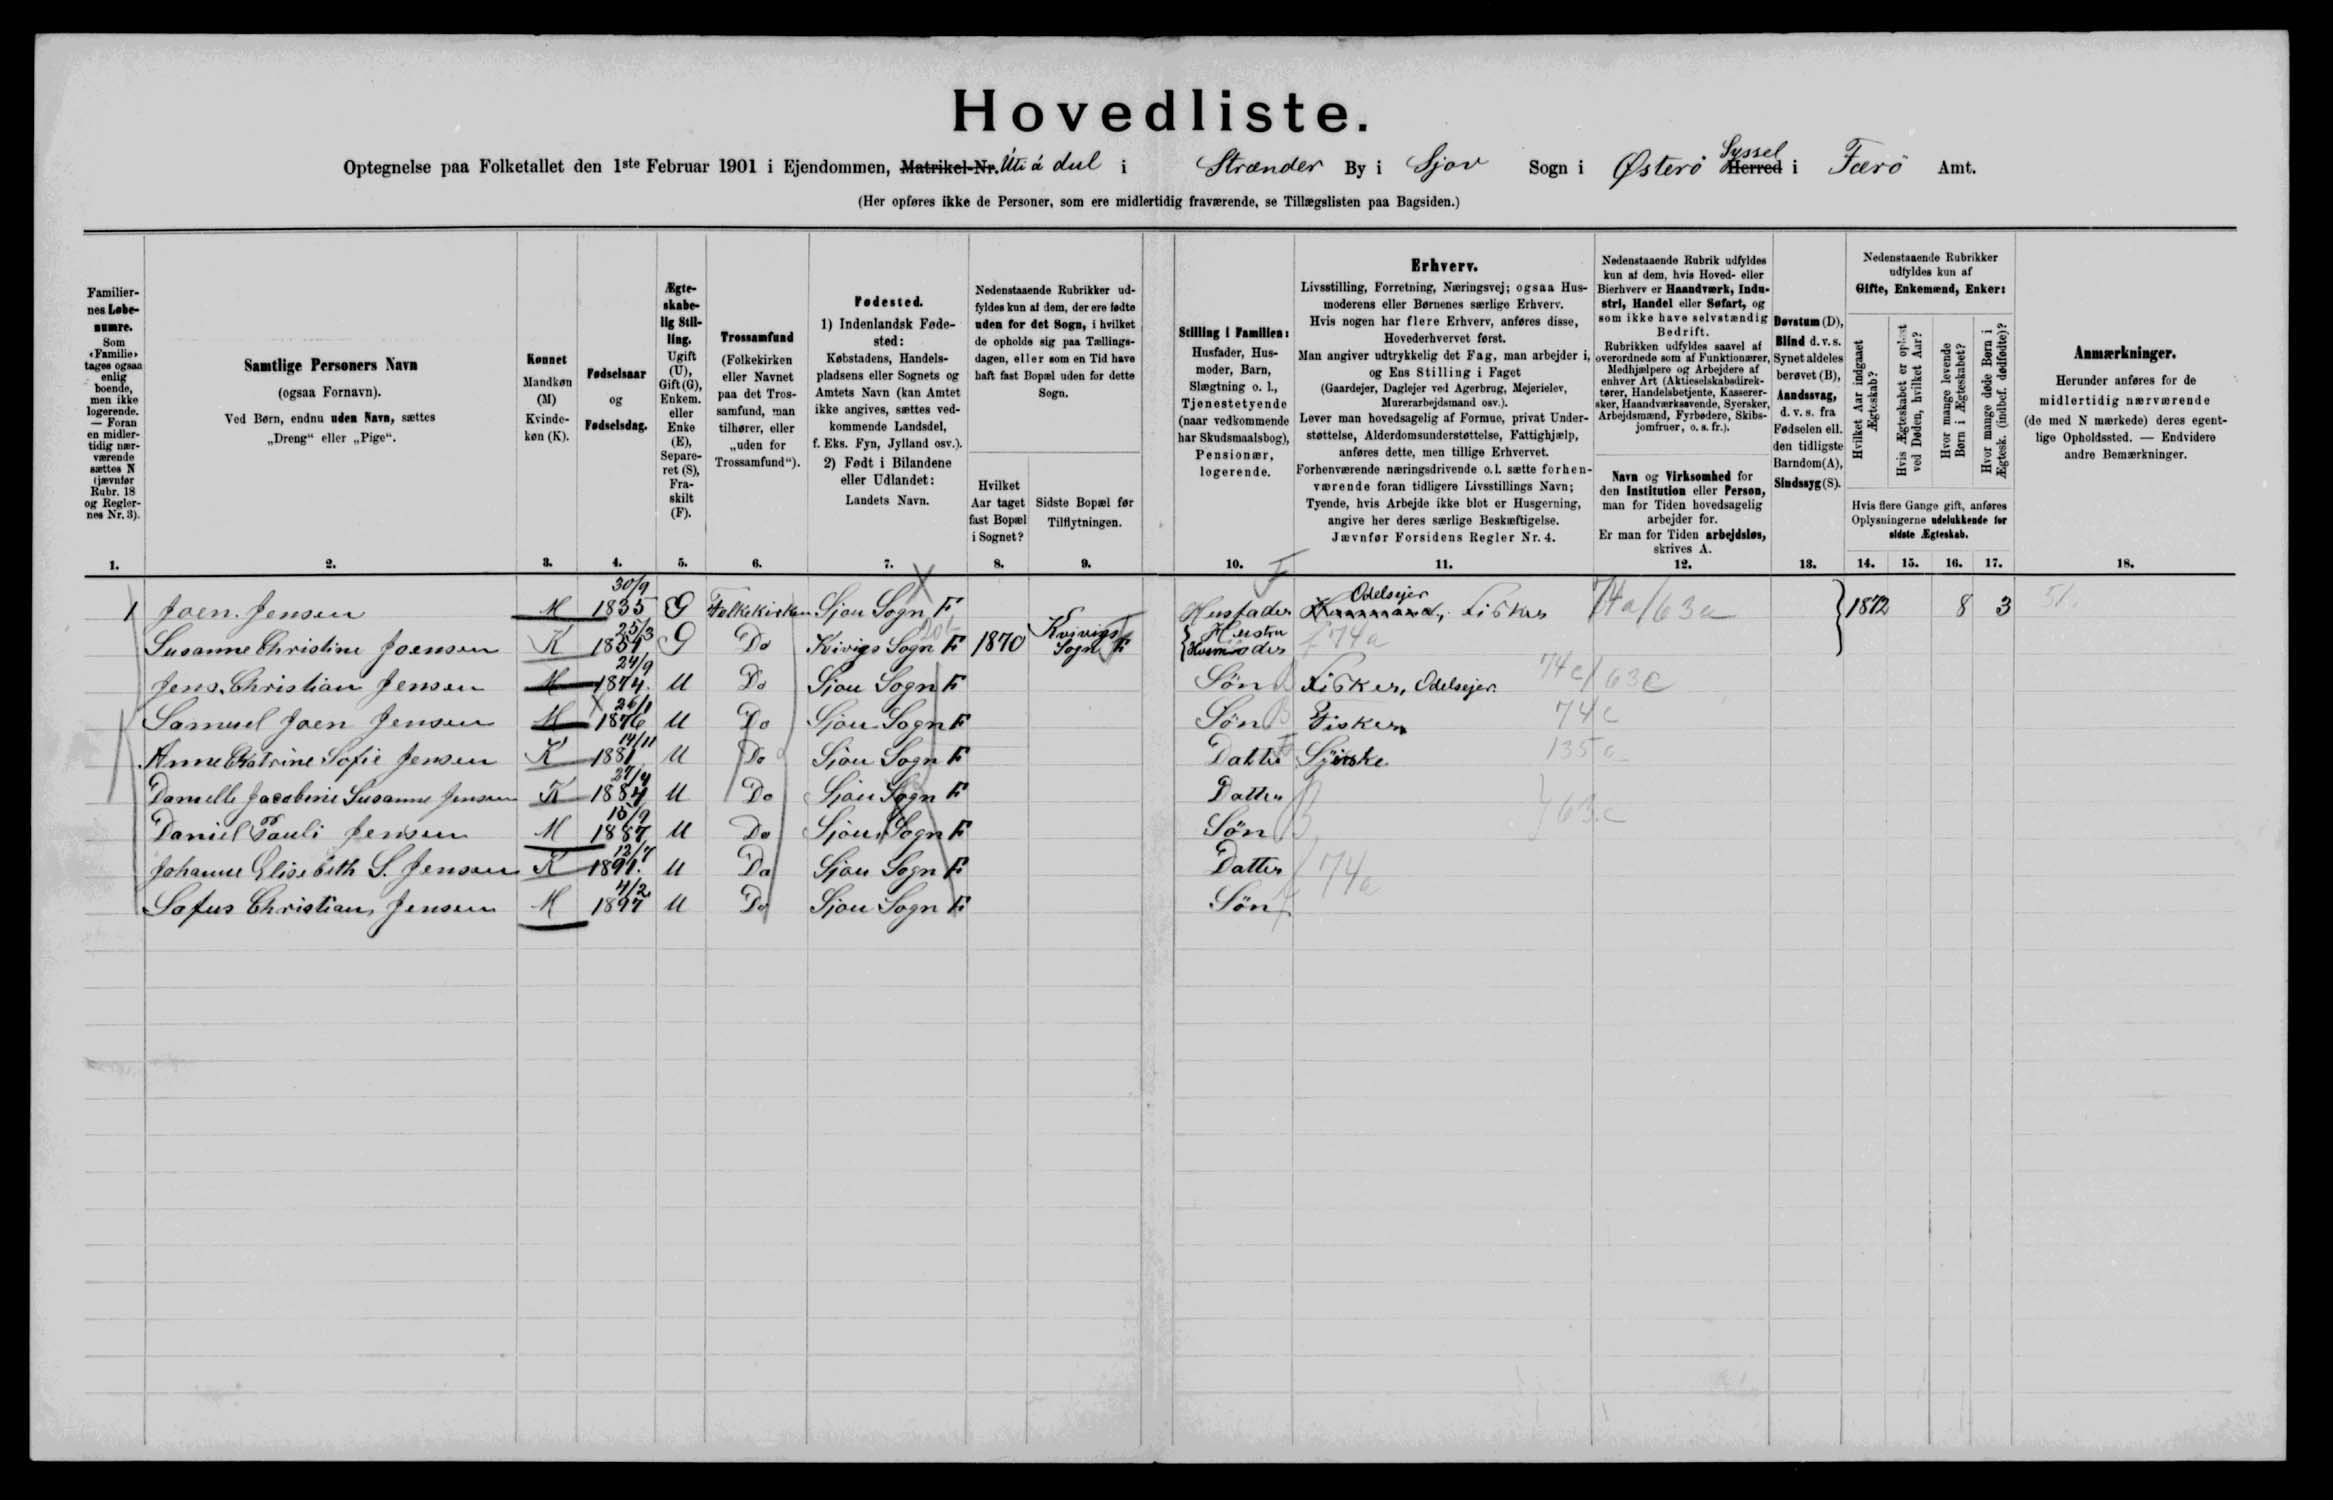 Hovedliste.
Optegnelse paa Folketallet den 1ste Februar 1901 i Ejendommen, Matrikel-Nr. Úti á dul i Strænder By i Sjov Sogn i Østerö Herred Syssel i Færö Amt.
(Her opføres ikke de Personer, som ere midlertidig fraværende, se Tillægslisten paa Bagsiden.)
Familiernes Løbenumre.
Som «Familie» tages ogsaa enlig boende, men ikke logerende. — Foran en midlertidig nærværende sættes N (jævnfør Rubr. 18 og Reglernes Nr. 3).
Samtlige Personers Navn
(ogsaa Fornavn).
Ved Børn, endnu uden Navn, sættes
„Dreng“ eller „Pige“.
Kønnet
Mandkøn (M)
Kvindekøn (K).
Fødselsaar
og
Fødselsdag.
Ægteskabelig Stilling.
Ugift (U), Gift (G), Enkem. eller Enke (E), Separeret (S), Fraskilt (F).
Trossamfund
(Folkekirken eller Navnet paa det Trossamfund, man tilhører, eller „uden for Trossamfund“).
Fødested.
1) Indenlandsk Fødested:
Købstadens, Handelspladsens eller Sognets og Amtets Navn (kan Amtet ikke angives, sættes vedkommende Landsdel, f. Eks. Fyn, Jylland osv.).
2) Født i Bilandene eller Udlandet:
Landets Navn.
Nedenstaaende Rubrikker udfyldes kun af dem, der ere fødte uden for det Sogn, i hvilket de opholde sig paa Tællingsdagen, eller som en Tid have haft fast Bopæl uden for dette Sogn.
Hvilket Aar taget fast Bopæl i Sognet?
Sidste Bopæl før Tilflytningen.
Stilling i Familien:
Husfader, Husmoder, Barn, Slægtning o. l., Tjenestetyende (naar vedkommende har Skudsmaalsbog), Pensionær, logerende.
Erhverv.
Livsstilling, Forretning, Næringsvej; ogsaa Husmoderens eller Børnenes særlige Erhverv.
Hvis nogen har flere Erhverv, anføres disse, Hovederhvervet først.
Man angiver udtrykkelig det Fag, man arbejder i, og Ens Stilling i Faget
(Gaardejer, Daglejer ved Agerbrug, Mejerielev, Murerarbejdsmand osv.).
Lever man hovedsagelig af Formue, privat Understøttelse, Alderdomsunderstøttelse, Fattighjælp, anføres dette, men tillige Erhvervet.
Forhenværende næringsdrivende o. l. sætte forhenværende foran tidligere Livsstillings Navn;
Tyende, hvis Arbejde ikke blot er Husgerning, angive her deres særlige Beskæftigelse.
Jævnfør Forsidens Regler Nr. 4.
Nedenstaaende Rubrik udfyldes kun af dem, hvis Hoved- eller Bierhverv er Haandværk, Industri, Handel eller Søfart, og som ikke have selvstændig Bedrift.
Rubrikken udfyldes saavel af overordnede som af Funktionærer, Medhjælpere og Arbejdere af enhver Art (Aktieselskabsdirektører, Handelsbetjente, Kasserersker, Haandværkssvende, Syersker, Arbejdsmænd, Fyrbødere, Skibsjomfruer, o. s. fr.).
Navn og Virksomhed for den Institution eller Person, man for Tiden hovedsagelig arbejder for.
Er man for Tiden arbejdsløs, skrives A.
Døvstum (D), Blind d. v. s. Synet aldeles berøvet (B), Aandssvag, d. v. s. fra Fødselen ell. den tidligste Barndom (A), Sindssyg (S).
Nedenstaaende Rubrikker udfyldes kun af
Gifte, Enkemænd, Enker:
Hvilket Aar indgaaet Ægteskab?
Hvis Ægteskabet er opløst ved Døden, hvilket Aar?
Hvor mange levende Børn i Ægteskabet?
Hvor mange døde Børn i Ægtesk. (indbef. dødfødte)?
Hvis flere Gange gift, anføres Oplysningerne udelukkende for sidste Ægteskab.
Anmærkninger.
Herunder anføres for de midlertidig nærværende (de med N mærkede) deres egentlige Opholdssted. — Endvidere andre Bemærkninger.
1. 2. 3. 4. 5. 6. 7. 8. 9. 10. 11. 12. 13. 14. 15. 16. 17. 18.
1 Joen. Jensen M 30/9 1835 G Folkekirken Sjou Sogn F Husfader Odelsejer, Fisker 74a/63a 1872 8 3
Susanne Christine Joensen K 25/3 1851 G Do Kvivigs Sogn F 1870 Kvivigs Sogn F Hustru Husmoder f 74a
Jens. Christian Jensen M 24/9 1874. U Do Sjou Sogn F Søn Fisker, Odelsejer. 74c/63c
Samuel Joen Jensen M 26/1 1876 U Do Sjou Sogn F Søn Fisker 74c
Anne Katrine Sofie Jensen K 14/11 1881 U Do Sjou Sogn F Datter Syerske 135a
Danielle Jacobine Susanne Jensen K 27/4 1884 U Do Sjou Sogn F Datter
Daniel Pauli Jensen M 15/9 1887 U Do Sjou Sogn F Søn 63c
Johanne Elisebeth S. Jensen K 12/7 1891. U Do Sjou Sogn F Datter 74a
Sofus Christian Jensen M 4/2 1897 U Do Sjou Sogn F Søn